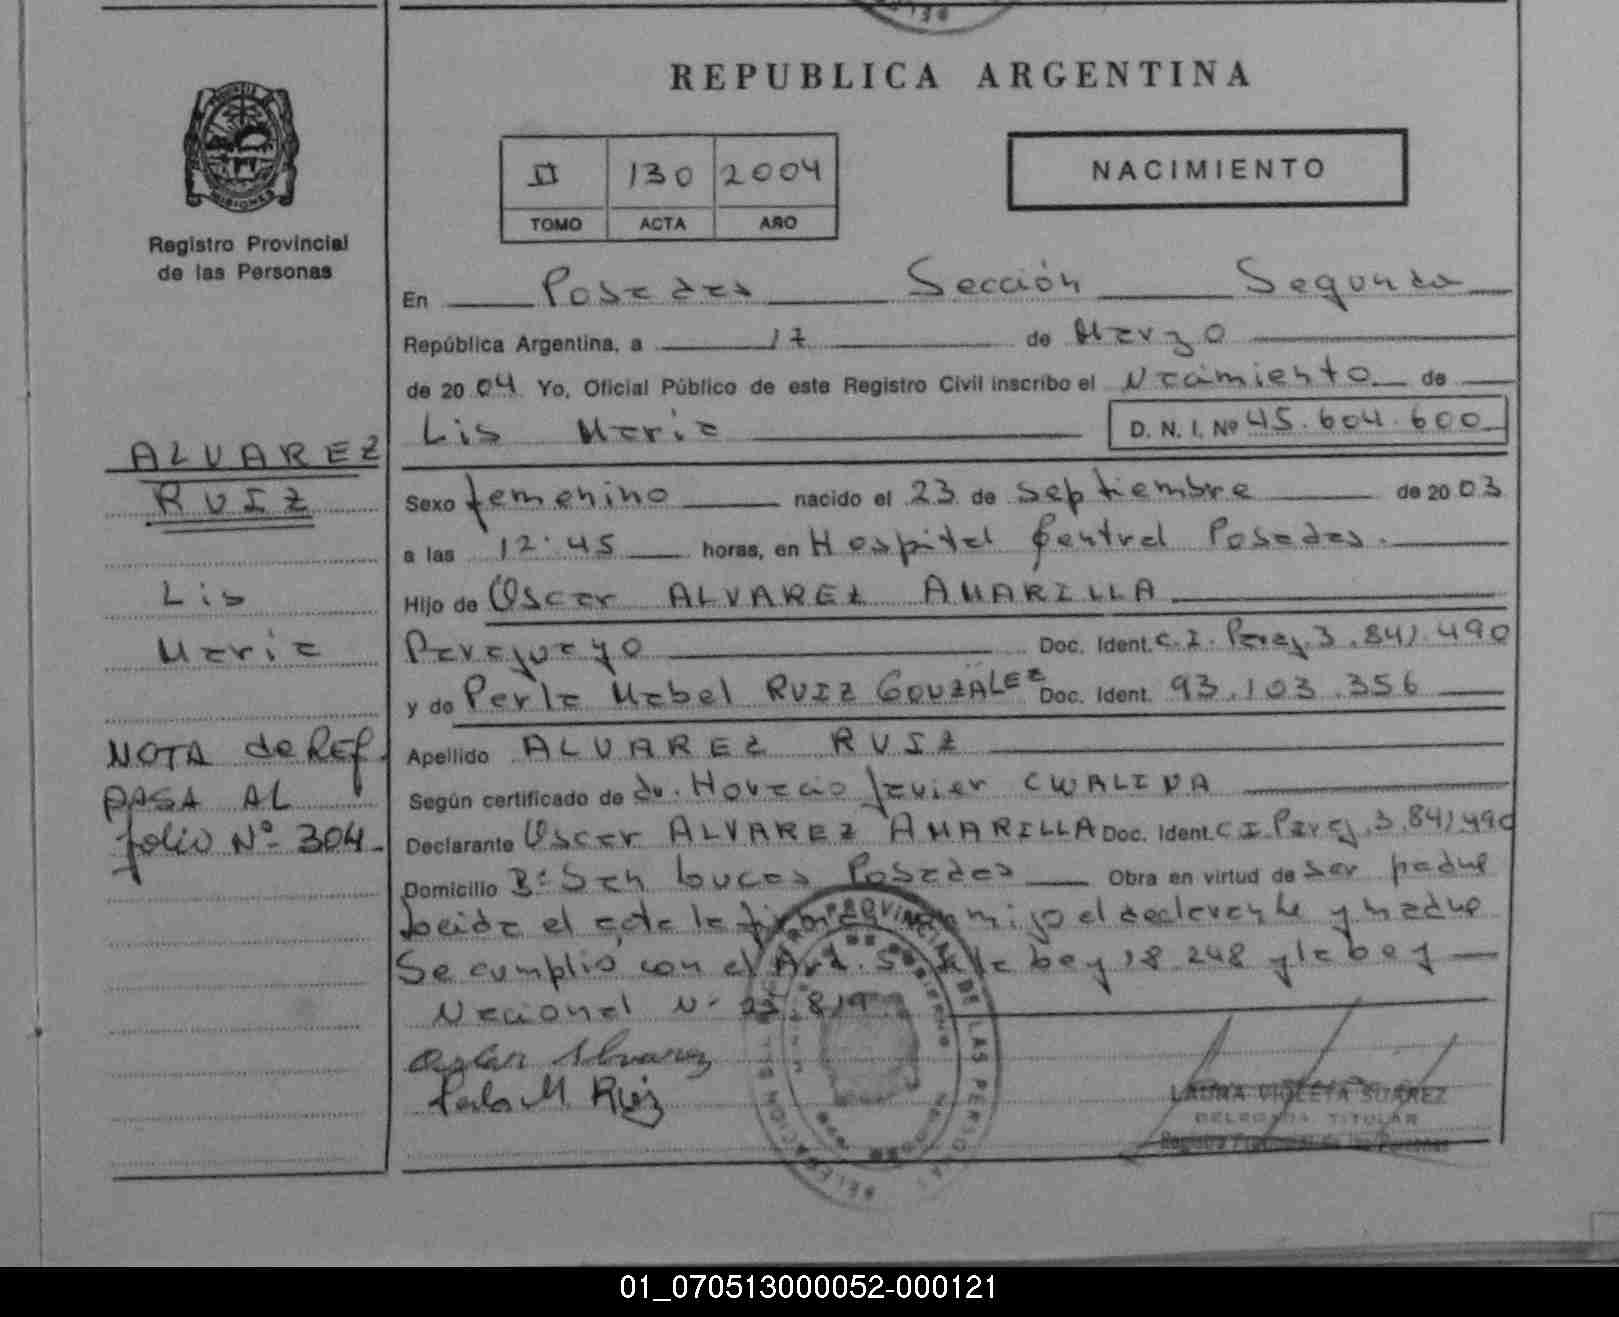 REPUBLICA ARGENTINA
II 130 2004
TOMO ACTA AÑO
NACIMIENTO
Registro Provincial
de las Personas
En Posadas Sección Segunda
República Argentina, a 17 de Marzo
de 2004 Yo, Oficial Público de este Registro Civil inscribo el Nacimiento de
Lis Maria D. N. I. Nº 45.604.600
Sexo femenino nacido el 23 de septiembre de 2003
a las 12.45 horas, en Hospital Central Posadas.
Hijo de Oscar ALVAREZ AMARILLA
Paraguayo Doc. Ident. C.I. Parag. 3.841.490
y de Perla Mabel RUIZ GONZALEZ Doc. Ident. 93.103.356
Apellido ALVAREZ RUIZ
Según certificado de dr. Horacio Javier CWALINA
Declarante Oscar ALVAREZ AMARILLA Doc. Ident. C I Parag. 3.841490
Domicilio Bº San Lucas Posadas Obra en virtud de ser padre
Leida el acta la firman conmigo el declarante y madre
Se cumplió con el Art. 5 de la Ley 18.248 y la Ley
Nacional Nº
Oscar Alvarez
Perla M. Ruiz
LAURA VIOLETA SUAREZ
DELEGADA TITULAR
Registro Provincial de las Personas
ALVAREZ
RUIZ
Lis
Maria
NOTA de REF.
PASA AL
folio Nº 304.
01_070513000052-000121